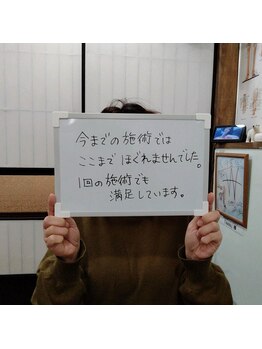 今までの施術では
ここまでほぐれませんでした。
1回の施術でも
満足しています。